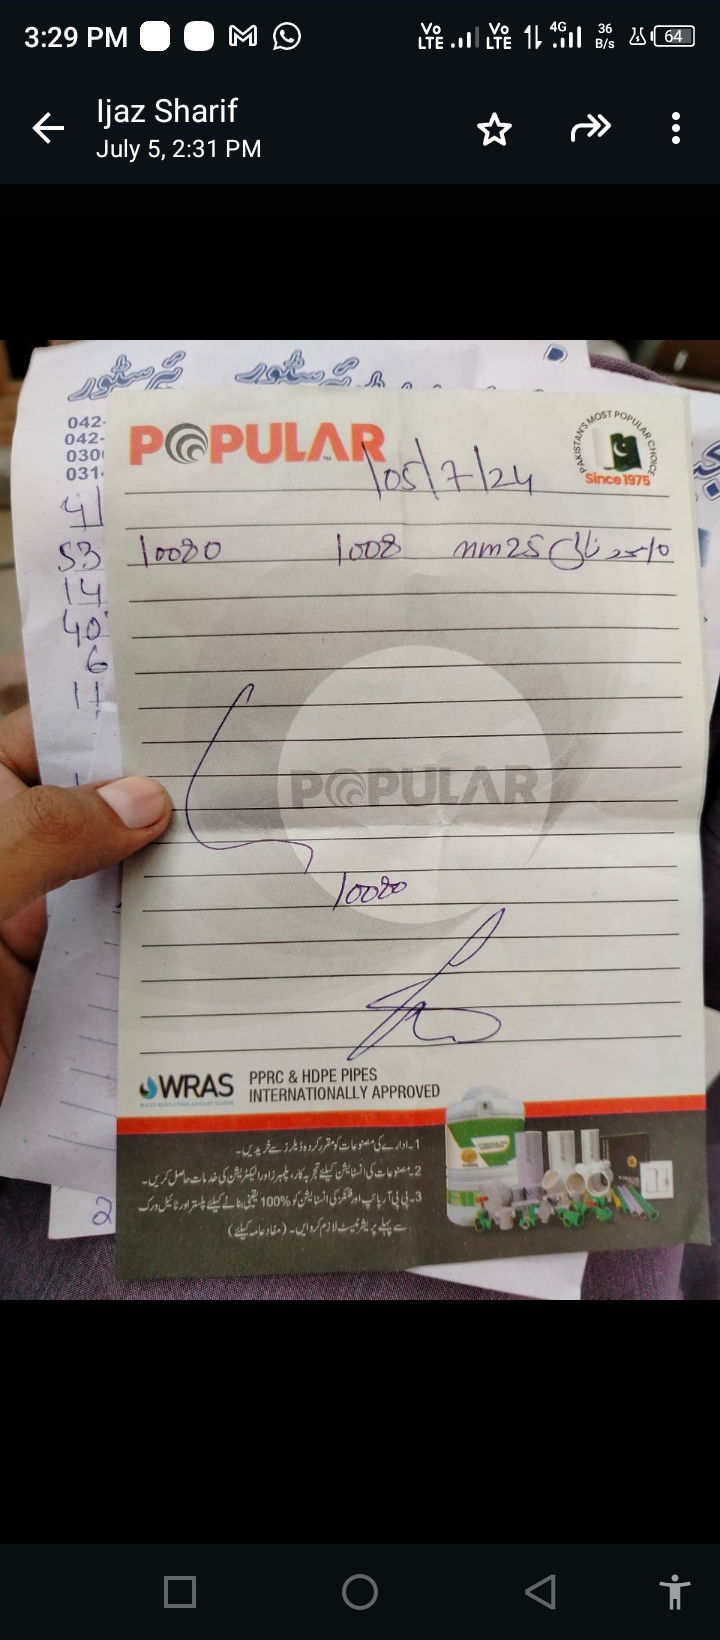 3:29 PM
Vo LTE Vo LTE 4G 36 B/s 64
Ijaz Sharif
July 5, 2:31 PM
042-
042-
030
031
POPULAR
PAKISTAN'S MOST POPULAR CHOICE
Since 1975
05/7/24
53
10080 1008 mm25 نالی عدد 10
14
40
6
11
POPULAR
10080
WRAS
PPRC & HDPE PIPES
INTERNATIONALLY APPROVED
1۔ ادارے کی مصنوعات کو مقرر کردہ ڈیلرز سے خریدیں۔
2۔ مصنوعات کی انسٹالیشن کیلئے تجربہ کار، پلمبرز اور الیکٹریشن کی خدمات حاصل کریں۔
3۔ پی پی آر پائپ اور فٹنگز کی انسٹالیشن کو 100% یقینی بنانے کیلئے پلستر اور ٹائیل ورک
سے پہلے پریشر ٹیسٹ لازم کروایں۔ (مفاد عامہ کیلئے)
2